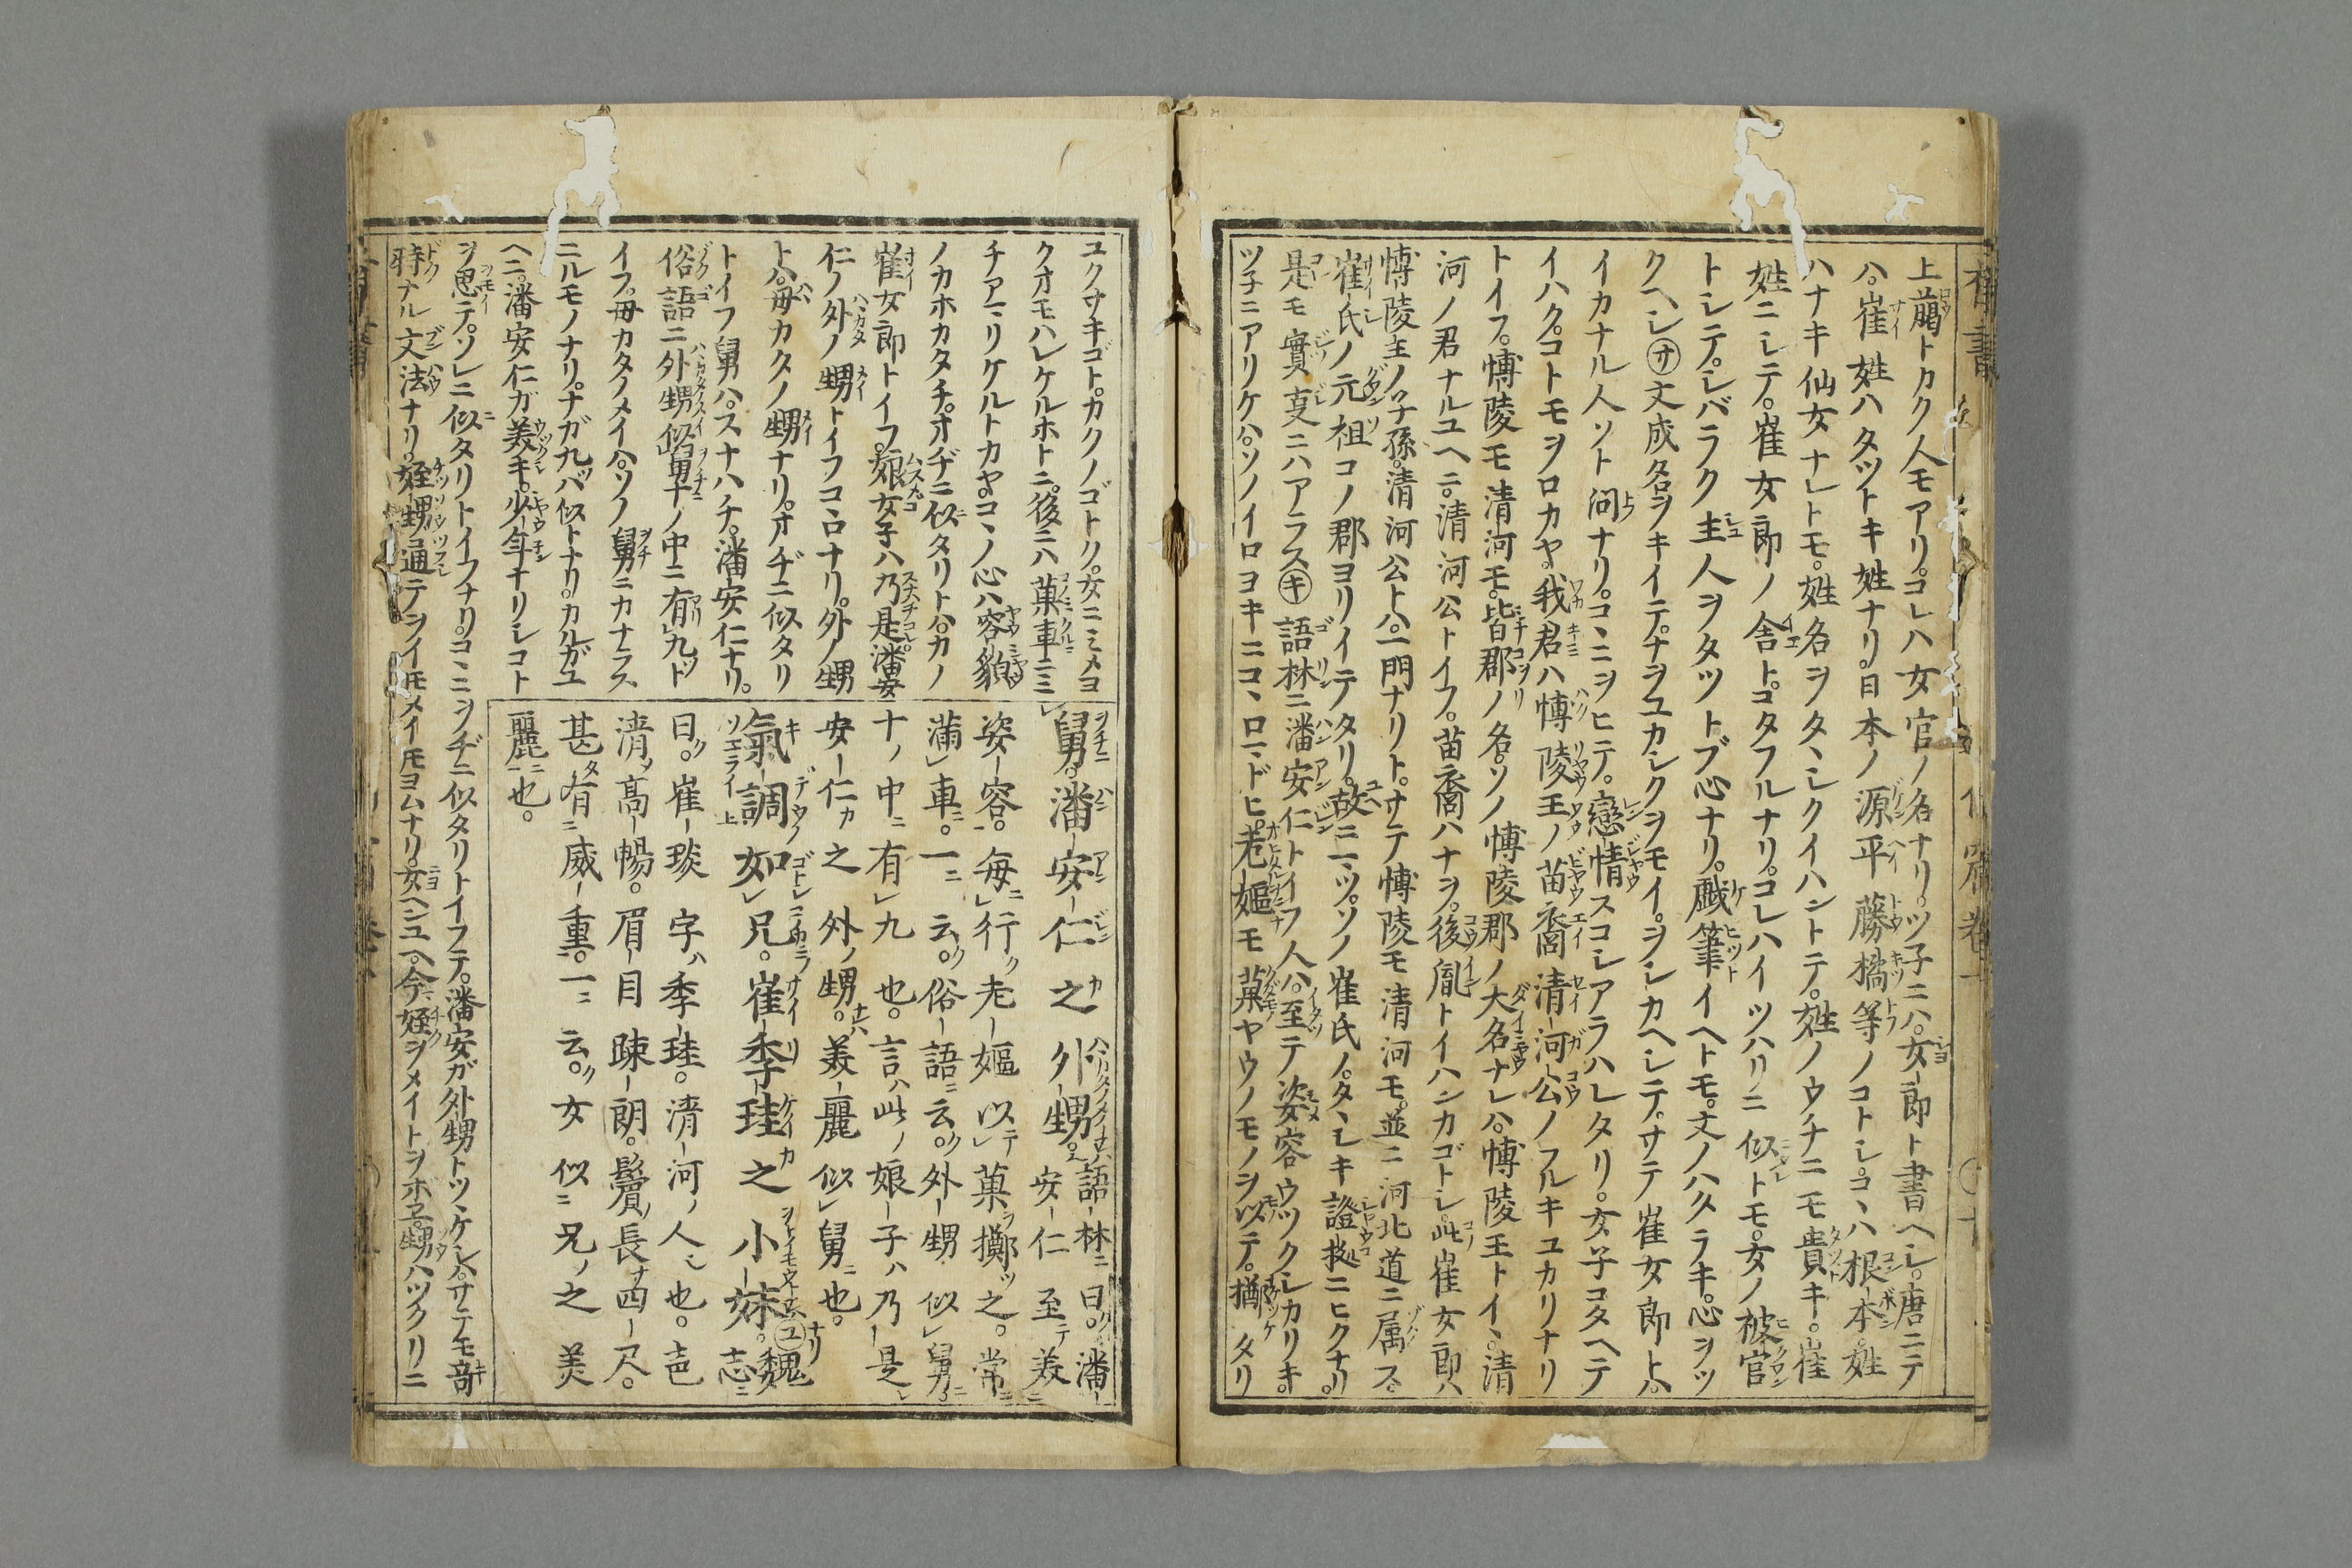 上﨟トカク人モアリ。コレハ女官ノ名ナリ。ツ子ニハ。女郎ト書ヘシ。唐ニテ
ハ。崔姓ハタツトキ姓ナリ。日本ノ源平藤橘等ノコトシ。コヽハ根本。姓
ハナキ仙女ナレトモ。姓名ヲタヽシクイハントテ。姓ノウチニモ貴キ。崔
姓ニシテ。崔女郎ノ舎ト。コタフルナリ。コレハイツハリニ似トモ。女ノ被官
トシテ。シバラク主人ヲタツトブ心ナリ。戯筆イヘトモ。文ノハタラキ。心ヲツ
クヘシ㋚文成名ヲキイテ。ナヲユカシクヲモイ。ヲシカヘシテ。サテ崔女郎トハ。
イカナル人ソト問ナリ。コヽニヲヒテ。戀情スコシアラハレタリ。女子コタヘテ
イハク。コトモヲロカヤ。我君ハ博陵王ノ苗裔清河公ノフルキユカリナリ
トイフ。博陵モ清河モ。皆郡ノ名。ソノ博陵郡ノ大名ナレハ。博陵王トイヽ。清
河ノ君ナルユヘニ。清河公トイフ。苗裔ハナヲ。後胤トイハンカゴトシ。此崔女郎ハ
博陵主ノ子孫。清河公トハ。一門ナリト。サテ博陵モ清河モ。並ニ河北道ニ属ス。
崔氏ノ元祖コノ郡ヨリイテタリ。故ニ一ツ。ソノ崔氏ノ。タヽシキ證拠ニヒクナリ。
是モ實㕝ニハアラス㋖語林ニ潘安仁トイフ人ハ。至テ姿容ウツクシカリキ。
ツ子ニアリケハ。ソノイロヨキニコヽロマドヒ。老嫗モ菓ヤウノモノヲ以テ。擲タリ
ユクサキゴト。カクノゴトク。女ニミメヨ
クオモハレケルホトニ。後ニハ菓車ニミ
チアマリケルトカヤ。コヽノ心ハ容貌
ノカホカタチ。オヂニ似タリトハ。カノ
崔女郎トイフ。娘女子ハ乃是潘安
仁ノ外ノ甥トイフコヽロナリ。外ノ甥
トハ。母カタノ甥ナリ。オヂニ似タリ
トイフ舅ハ。スナハチ。潘安仁ナリ。
俗語ニ外甥似舅十ノ中ニ有九ット
イフ。母カタノメイハ。ソノ舅ニカナラス
ニルモノナリ。十ガ九ツバ似トナリ。カルガユ
ヘニ。潘安仁ガ美キ。少年ナリシコト
ヲ思テ。ソレニ似タリトイフナリ。コヽニヲヂニ似タリトイフテ。潘安ガ外甥トツヽケシハ。サテモ奇
特ナル文法ナリ。姪甥通テヲイトモメイトモヨムナリ。女ヘンユヘ。今姪ヲメイトヲボエ。甥ハツクリニ
舅。潘安仁之外甥。語林ニ曰。潘
安仁至テ美ニ
姿容。毎行ク老嫗以テ菓ヲ擲ツ之。常ニ
滿車ニ。一ニ云ク。俗語ニ云ク。外甥似舅ニ。
十ノ中ニ有九也。言ハ此ノ娘子ハ乃是レ
安仁カ之外ノ甥。美麗似舅ニ也。
氣調如兄。崔季珪之小妹。㋴魏志ニ
曰ク。崔琰字ハ季珪。清河ノ人也。邑
清メ高暢。眉目疎朗。鬚長サ四尺。
甚タ有ニ威重一。一ニ云ク。女似ニ兄ノ之美
麗一ニ也。